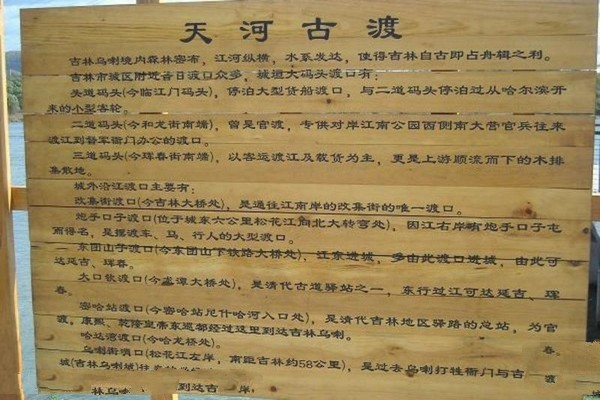 天河古渡
吉林乌喇境内森林密布，江河纵横，水系发达，使得吉林自古即占舟辑之利。
吉林市城区附近昔日渡口众多，城垣大码头渡口有：
头道码头(今临江门码头)，停泊大型货船渡口，与二道码头停泊过从哈尔滨开
来的小型客轮。
二道码头(今和龙街南端)，曾是官渡，专供对岸江南公园西侧南大营官兵往来
渡江到督军衙门办公的渡口。
三道码头(今珲春街南端)，以客运渡江及载货为主，更是上游顺流而下的木排
集散地。
城外沿江渡口主要有：
改集街渡口(今吉林大桥处)，是通往江南岸的改集街的唯一渡口。
炮手口子渡口(位于城东六公里松花江向北大转弯处)，因江右岸有炮手口子屯
而得名，是摆渡车、马、行人的大型渡口。
东团山子渡口(今东团山下铁路大桥处)，江东进城，多由此渡口进城，由此可
达延吉、珲春。
大口钦渡口(今 大桥处)，是清代古道驿站之一，东行过江可达延吉、珲
春。
密哈站渡口(今密哈站尼什哈河入口处)，是清代吉林地区驿路的总站，为官
渡，康熙、乾隆皇帝东巡都经过这里到达吉林乌喇。
哈达湾渡口(今哈龙桥处)。
春。
乌喇街 口(松花江左岸，南距吉林约58公里)，是过去乌喇打牲衙门与吉
城(吉林乌喇城)往
渡
林乌 到达吉 岸